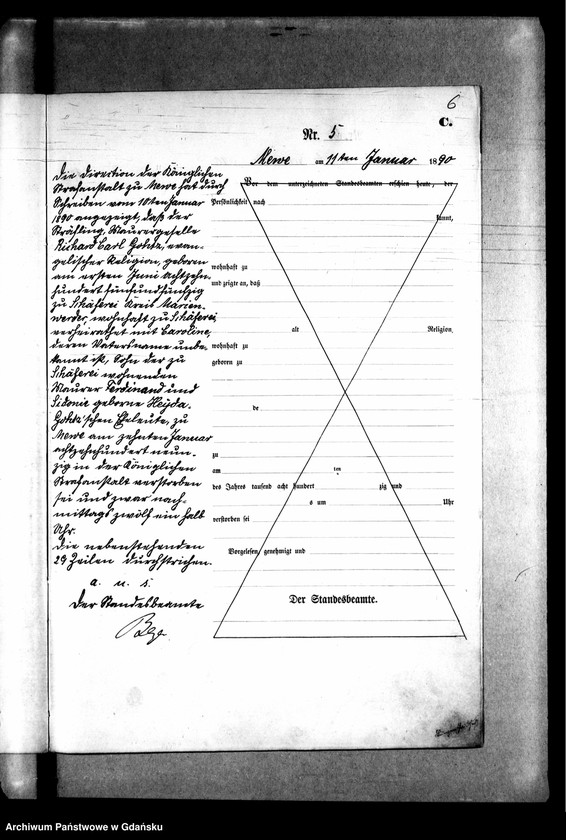 6
C.
Nr. 5
Mewe am 11ten Januar 1890
Die Direction der Königlichen
Strafanstalt zu Mewe hat durch
Schreiben vom 10ten Januar
1890 angezeigt, daß der
Sträfling, Maurergeselle
Richard Carl, evan-
gelischer Religion, geboren
am ersten Juni achtzehn-
hundert fünfundfünfzig
zu Schäferei Kreis Marien-
werder, wohnhaft zu Schäferei,
verheirathet mit Caroline,
deren Vatersname unbe-
kannt ist, Sohn der zu
Schäferei wohnenden
Maurer Ferdinand und
Sidonie geborne Heyda-
schen Eheleute, zu
Mewe am zehnten Januar
achtzehnhundert neun-
zig in der Königlichen
Strafanstalt verstorben
sei und zwar nach-
mittags zwölf ein halb
Uhr.
Die nebenstehenden
29 Zeilen durchstrichen.
a. u. s.
Der Standesbeamte
Vor dem unterzeichneten Standesbeamten erschien heute, der
Persönlichkeit nach
kannt,
wohnhaft zu
und zeigte an, daß
alt Religion,
wohnhaft zu
geboren zu
de
zu
am ten
des Jahres tausend acht hundert zig und
s um Uhr
verstorben sei
Vorgelesen, genehmigt und
Der Standesbeamte.
Archiwum Państwowe w Gdańsku